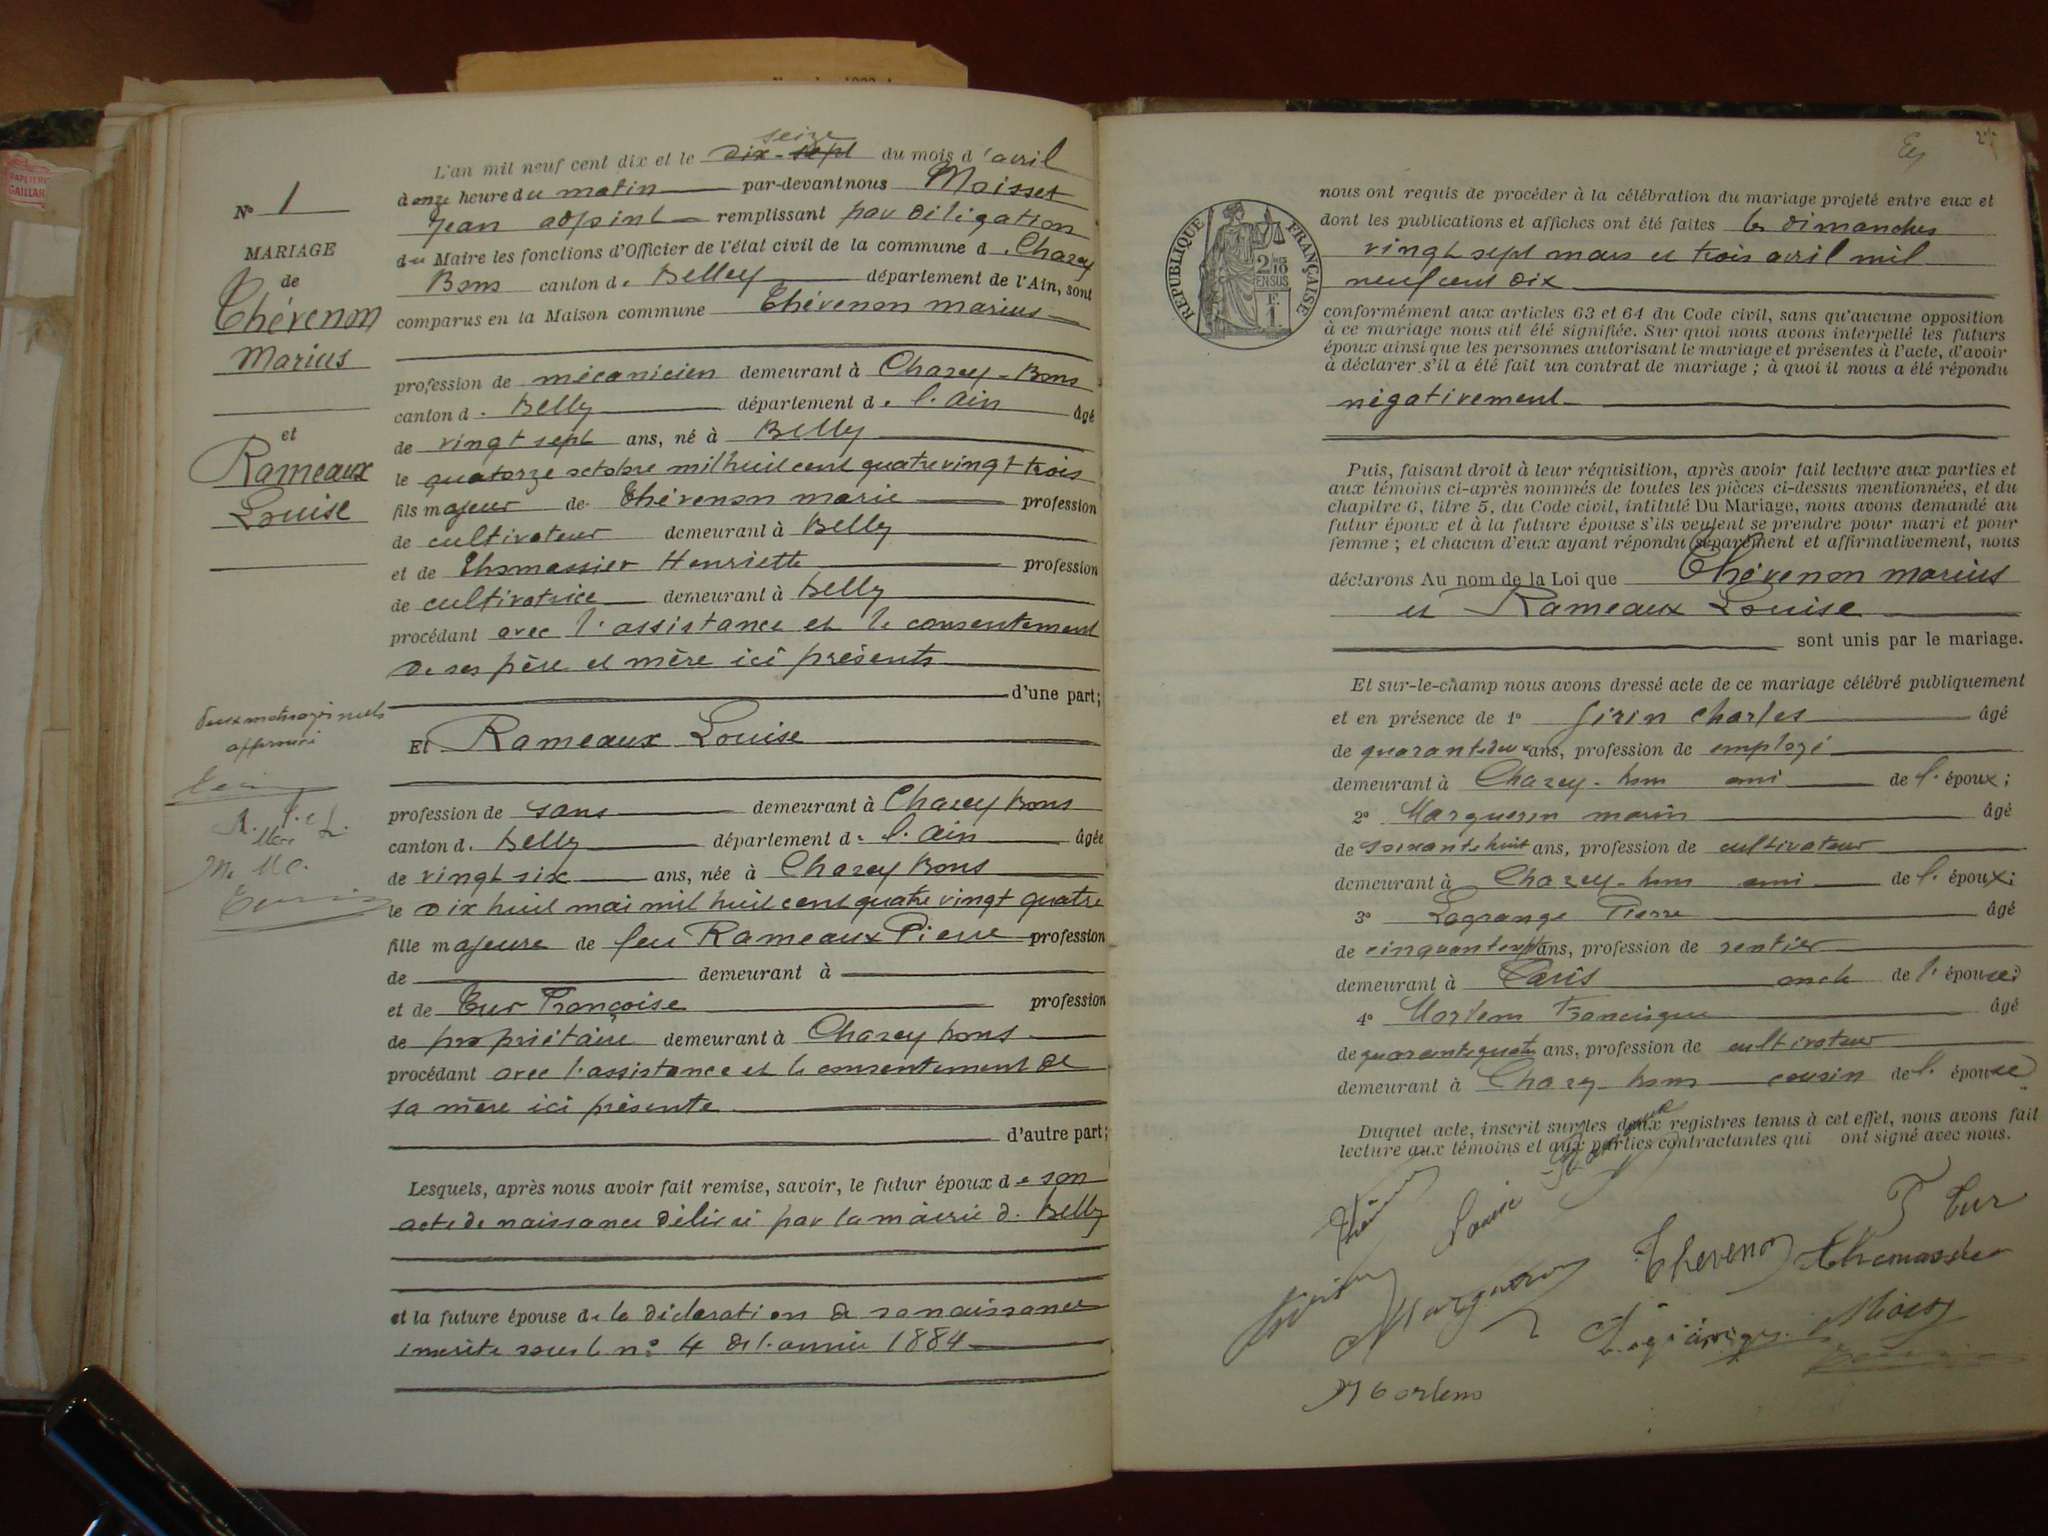 PAPETERIE
GAILLAR
N° 1
MARIAGE
de
Thévenon
Marius
et
Rameaux
Louise
seize
L'an mil neuf cent dix et le dix-sept du mois d'avril
à onze heure du matin par-devant nous Moisset
Jean adjoint remplissant par déligation
du Maire les fonctions d'Officier de l'état civil de la commune d. Chazey
Bons canton d. Belley département de l'Ain, sont
comparus en la Maison commune Thévenon marius
profession de mécanicien demeurant à Chazey-Bons
canton d. Belly département d. l. ain âgé
de vingt sept ans, né à Belly
le quatorze octobre mil huit cent quatre vingt trois
fils majeur de Thévenon marie profession
de cultivateur demeurant à Belly
et de Thomassier Henriette profession
de cultivatrice demeurant à Belly
procédant avec l'assistance et le consentement
de ses père et mère ici présents
d'une part;
Et Rameaux Louise
profession de sans demeurant à Chazey bons
canton d. Belly département d. l. ain âgée
de vingt six ans, née à Chazey bons
le dix huit mai mil huit cent quatre vingt quatre
fille majeure de feu Rameaux Pierre profession
de demeurant à
et de Tur Françoise profession
de propriétaire demeurant à Chazey bons
procédant avec l'assistance et le consentement de
sa mère ici présente
d'autre part;
Lesquels, après nous avoir fait remise, savoir, le futur époux de son
acte de naissance délivré par la mairie d. Belly
et la future épouse de la déclaration de sa naissance
inscrite sous le n° 4 de l. année 1884
nous ont requis de procéder à la célébration du mariage projeté entre eux et
dont les publications et affiches ont été faites les dimanches
vingt sept mars et trois avril mil
neuf cent dix
RÉPUBLIQUE FRANÇAISE
2/10 EN SUS
1 F.
conformément aux articles 63 et 64 du Code civil, sans qu'aucune opposition
à ce mariage nous ait été signifiée. Sur quoi nous avons interpellé les futurs
époux ainsi que les personnes autorisant le mariage et présentes à l'acte, d'avoir
à déclarer s'il a été fait un contrat de mariage; à quoi il nous a été répondu
négativement
Puis, faisant droit à leur réquisition, après avoir fait lecture aux parties et
aux témoins ci-après nommés de toutes les pièces ci-dessus mentionnées, et du
chapitre 6, titre 5, du Code civil, intitulé Du Mariage, nous avons demandé au
futur époux et à la future épouse s'ils veulent se prendre pour mari et pour
femme; et chacun d'eux ayant répondu séparément et affirmativement, nous
déclarons Au nom de la Loi que Thévenon marius
et Rameaux Louise
sont unis par le mariage.
Et sur-le-champ nous avons dressé acte de ce mariage célébré publiquement
et en présence de 1° Girin Charles âgé
de quarante deux ans, profession de employé
demeurant à Chazey-bons ami de l. époux;
2° Margueron marin âgé
de soixante huit ans, profession de cultivateur
demeurant à Chazey-bons ami de l. époux;
3° Lagrange Pierre âgé
de cinquante sept ans, profession de rentier
demeurant à Paris oncle de l'épouse;
4° Mortem Francisque âgé
de quarante quatre ans, profession de cultivateur
demeurant à Chazey-bons cousin de l. épouse
Duquel acte, inscrit sur les deux registres tenus à cet effet, nous avons fait
lecture aux témoins et aux parties contractantes qui ont signé avec nous.
Louise
F Tur
Thevenon
Thomassier
Lagrange